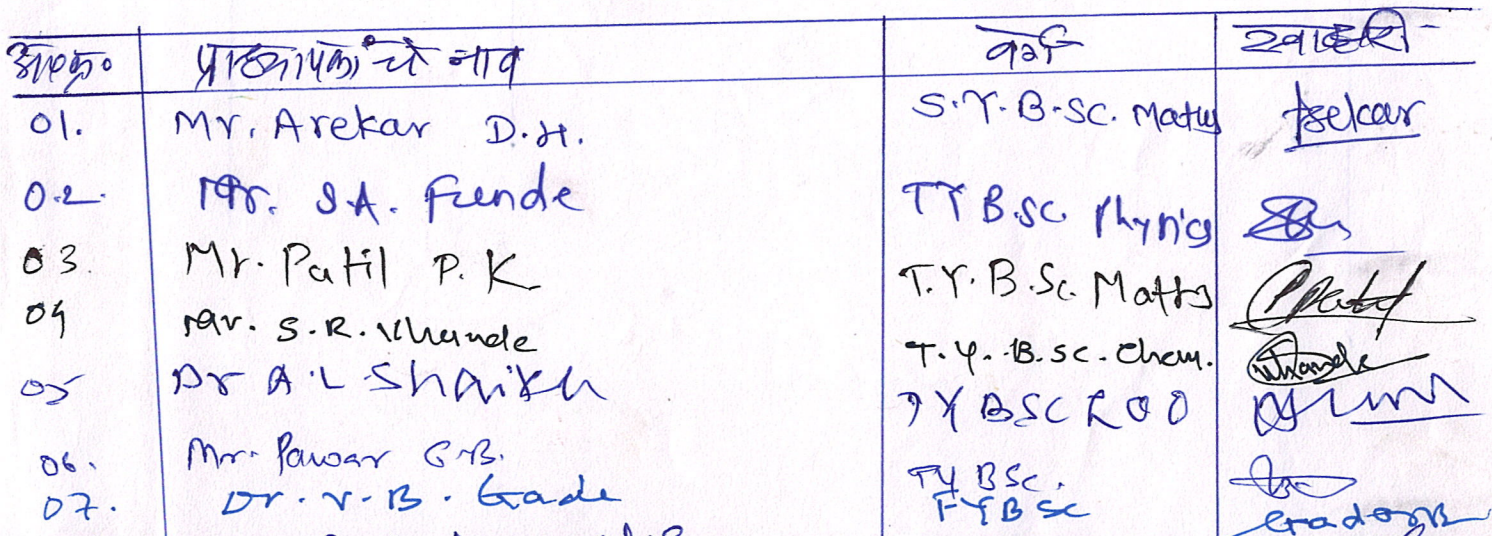 अ.क्र. प्राध्यापकांचे नाव वर्ग स्वाक्षरी
01. Mr. Arekar D.H. S.Y.B.SC. Maths
0.2. Mr. S.A. Funde TY B.SC. Physics
03. Mr. Patil P.K T.Y.B.Sc. Maths
04 Mr. S.R. Khande T.Y.B.SC. Chem. Khande
05 Dr A.L Shaikh TY BSC ZOO
06. Mr. Pawar G.B. TY BSC.
07. Dr. V.B. Gade FYBSC